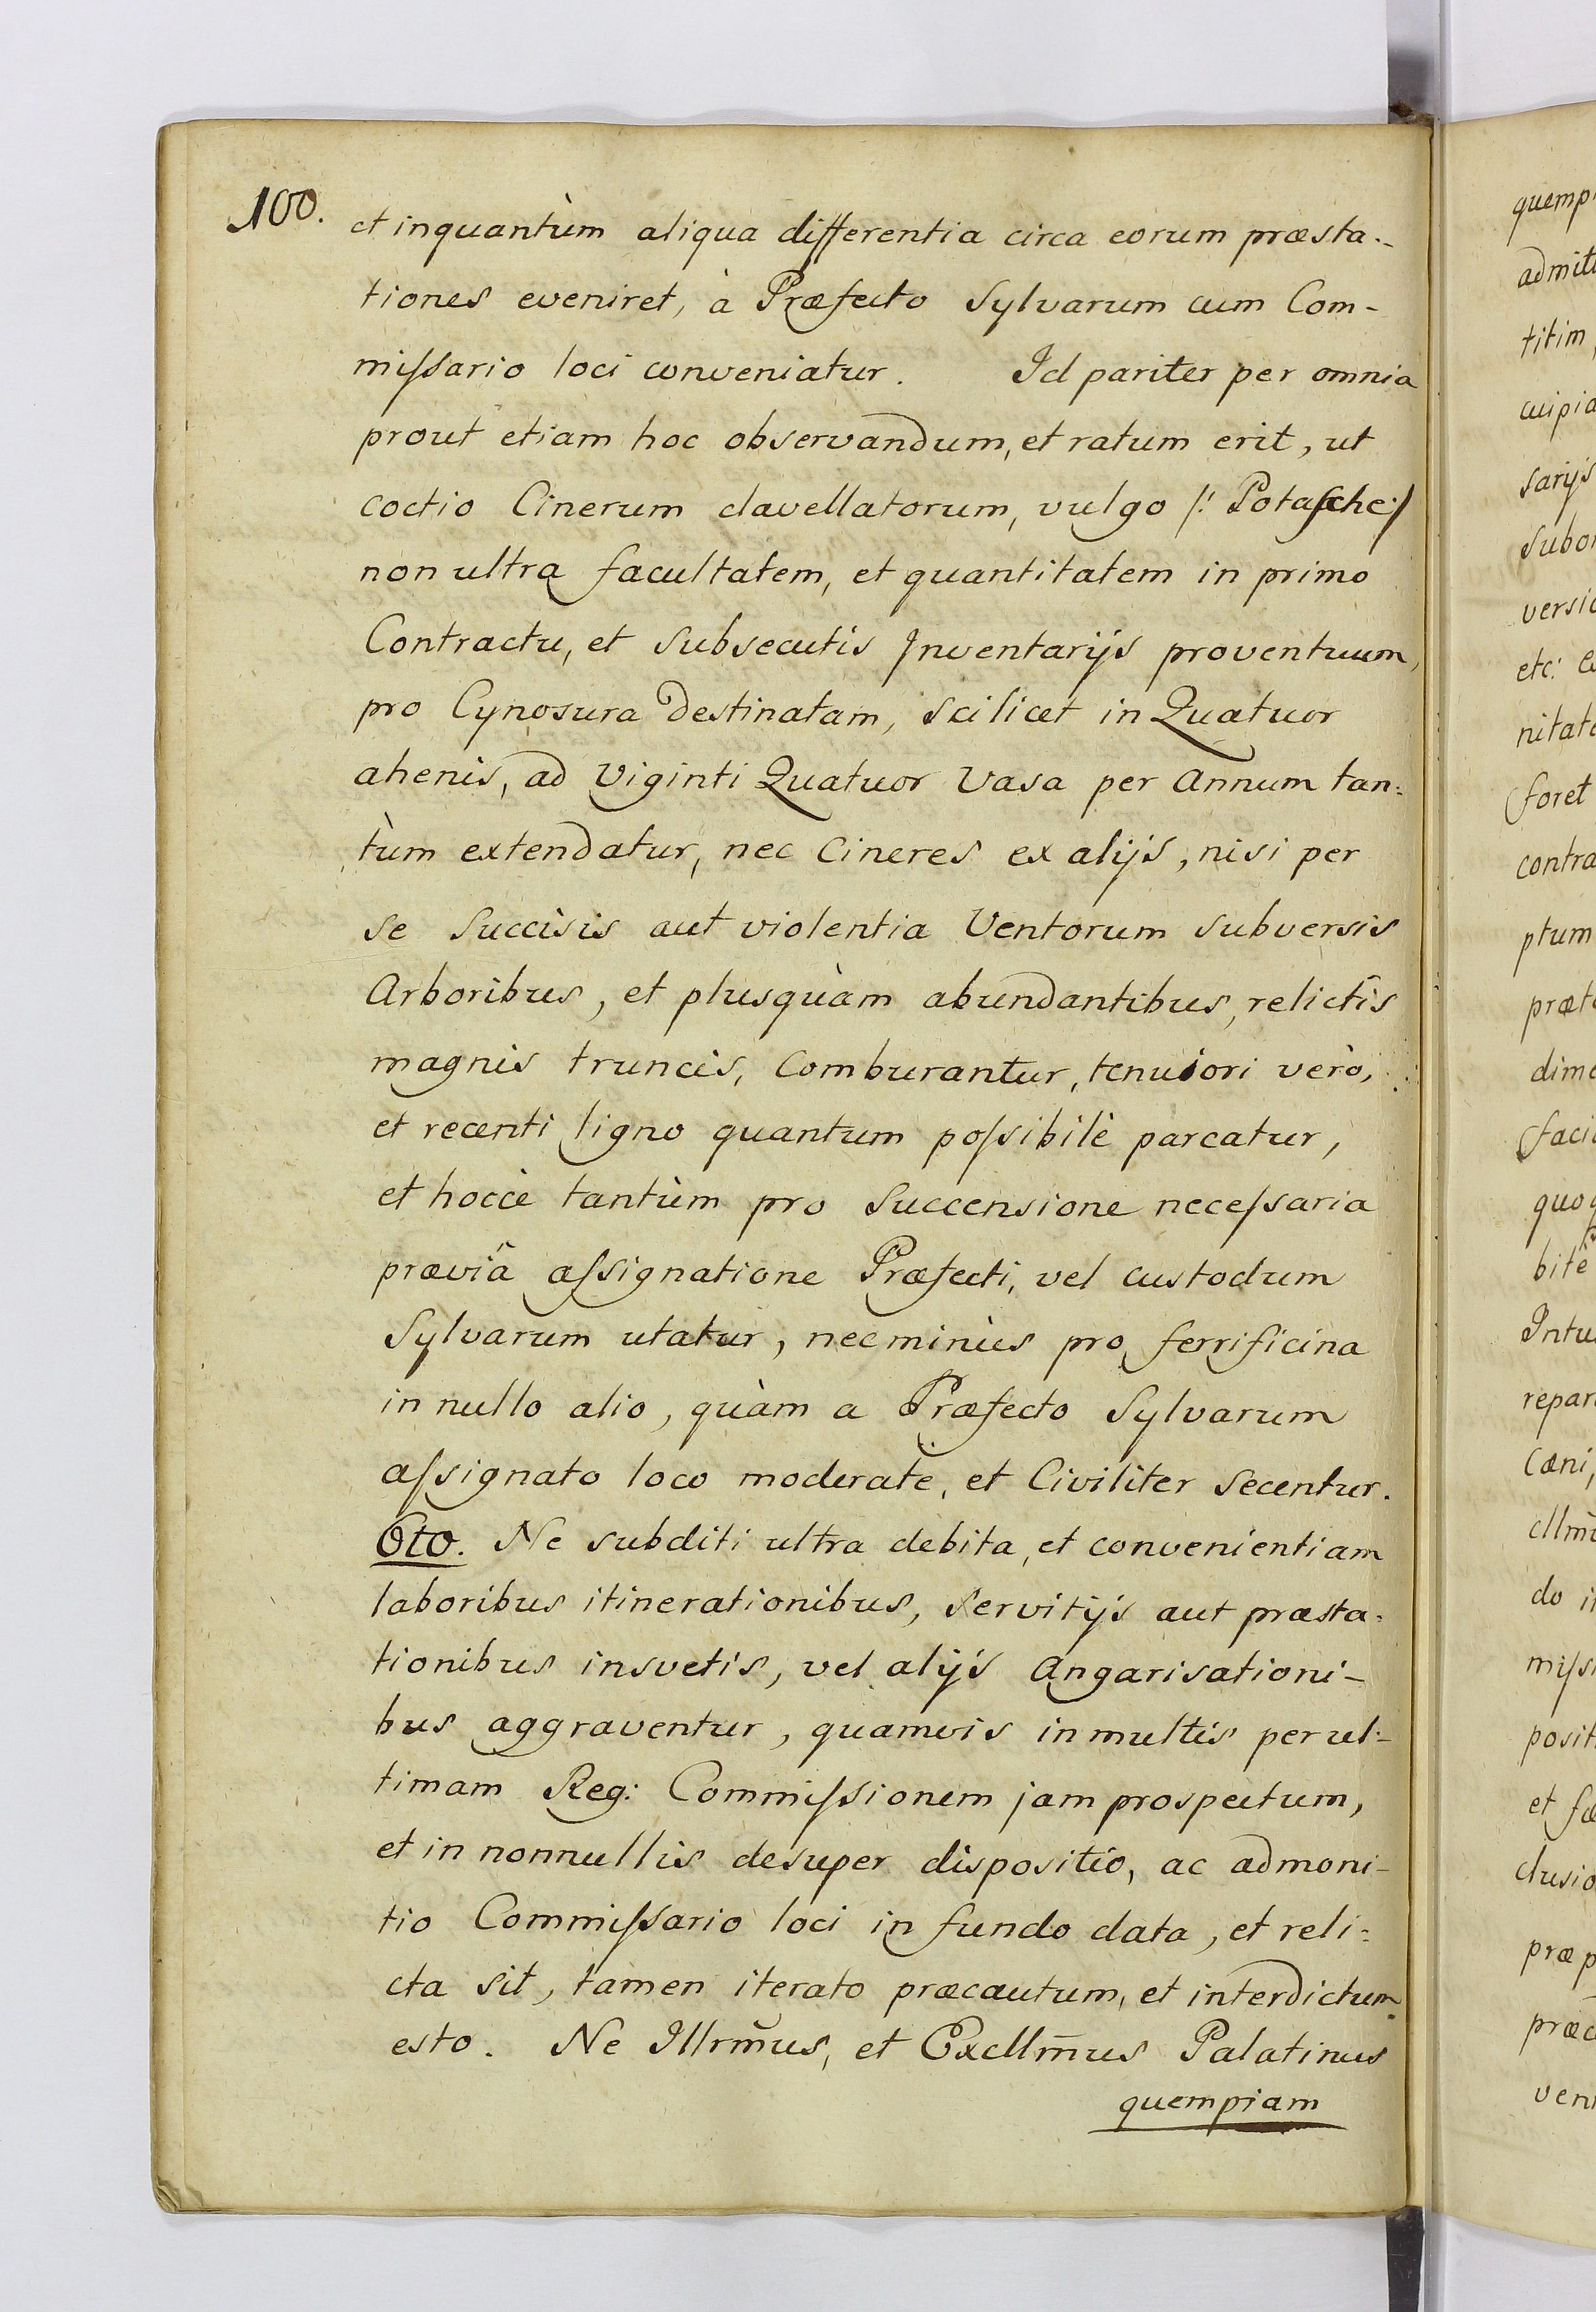 100.
et inquantùm aliqua differentia circa eorum præsta-
tiones eveniret, à Præfecto Sylvarum cum Com-
mißario loci conveniatur. Id pariter per omnia
prout etiam hoc observandum, et ratum erit, ut
coctio Cinerum clavellatorum, vulgo /: Potasche :/
non ultra facultatem, et quantitatem in primo
Contractu, et subsecutis Inventarijs proventuum,
pro Cynosura destinatam, scilicet in Quatuor
ahenis, ad Viginti Quatuor Vasa per Annum tan=
tùm extendatur, nec Cineres ex alijs, nisi per
se succisis aut violentia Ventorum subversis
Arboribus, et plusquàm abundantibus, relictis
magnis truncis, Comburantur, tenuiori verò,
et recenti ligno quantum poßibilè parcatur,
et hoccè tantùm pro succensione neceßaria
præviâ aßignatione Præfecti, vel custodum
Sylvarum utatur, nec minùs pro ferrificina
in nullo alio, quàm a Præfecto Sylvarum
aßignato loco moderate, et Civiliter secentur.
6to. Ne subditi ultra debita, et convenientiam
laboribus itinerationibus, servitijs aut præsta=
tionibus insvetis, vel alijs Angarisationi-
bus aggraventur, quamvis in multis per ul-
timam Reg: Commißionem jam prospectum,
et in nonnullis desuper dispositio, ac admoni-
tio Commißario loci in fundo data, et reli=
cta sit, tamen iterato præcautum, et interdictum
esto. Ne Illrm̃us, et Excllm̃us Palatinus
quempiam
quemp
admit
titim
cuipia
sarijs
subo
versi
etc:
nitat
foret
contra
ptum
præt
dim
faci
quo
bite
Intu
repar
cæni,
do
mißi
posit
et
clusio
præ
præc
ven